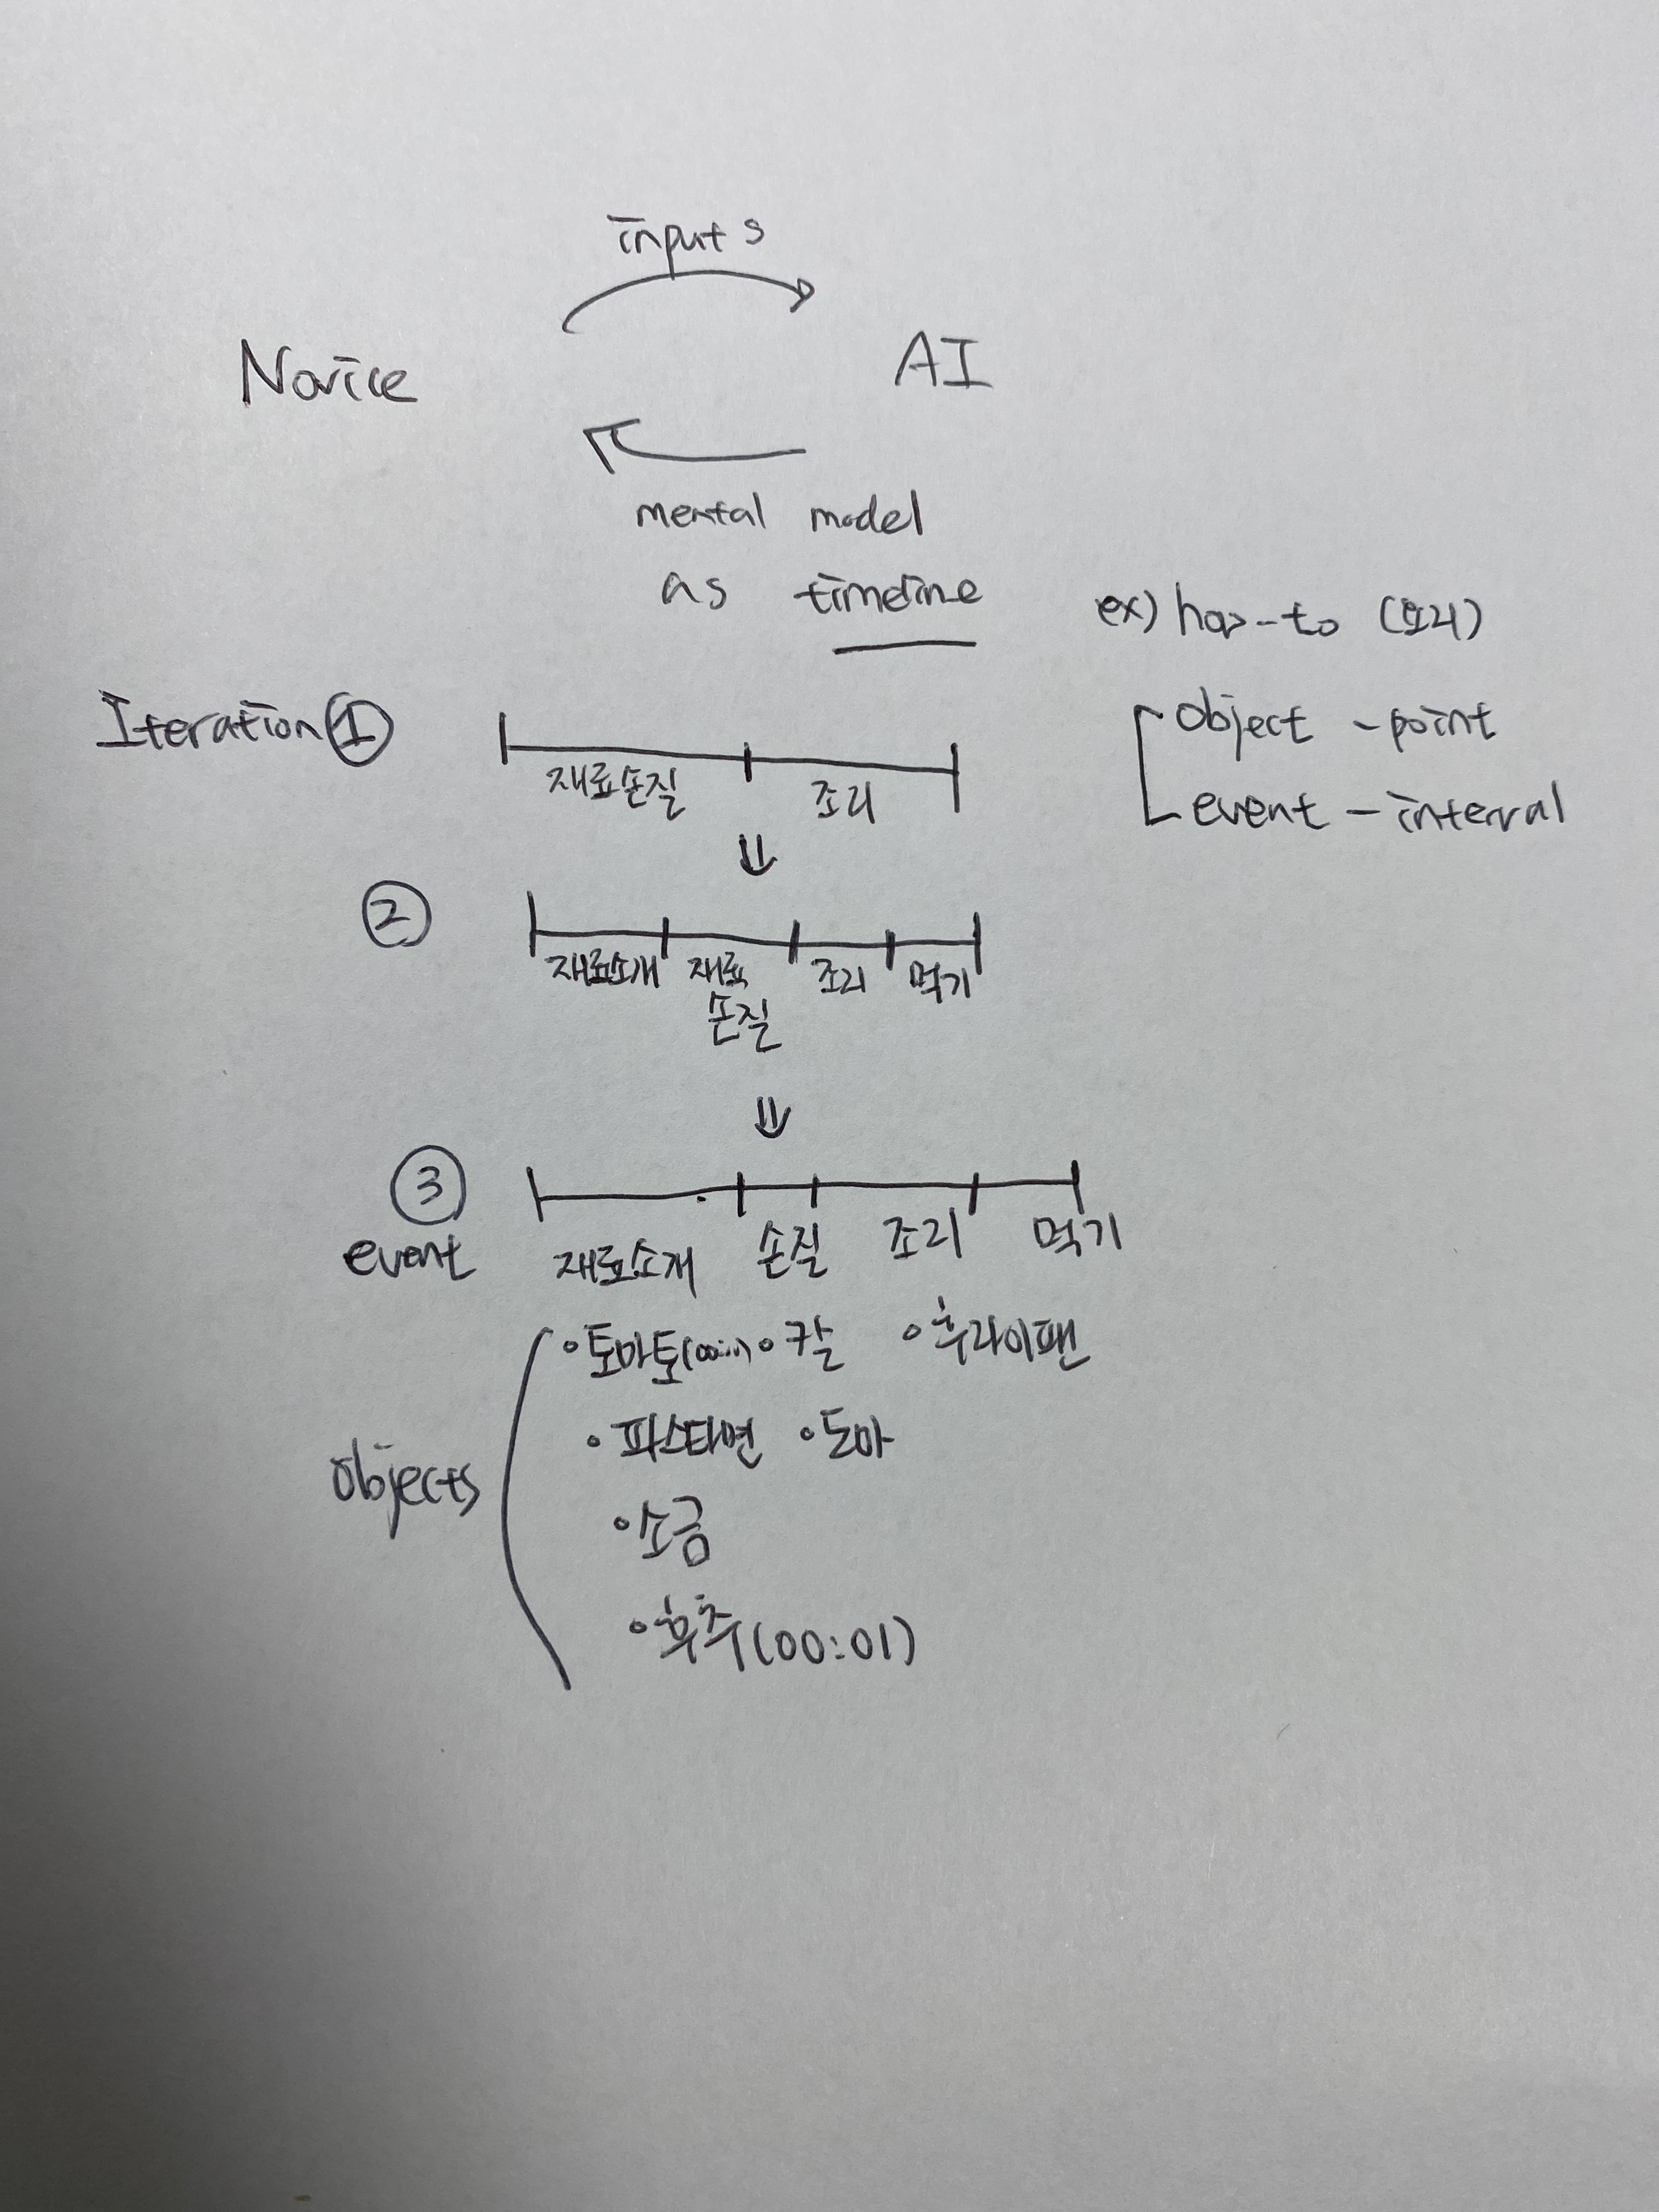 inputs
Novice AI
mental model
as timeline
ex) how-to (요리)
object - point
event - interval
Iteration ①
재료손질 조리
⇓
②
재료소개 재료 조리 먹기
손질
⇓
③
event
재료소개 손질 조리 먹기
Objects
• 토마토 • 칼 • 후라이팬
• 파스타면 • 도마
• 소금
• 후추(00:01)